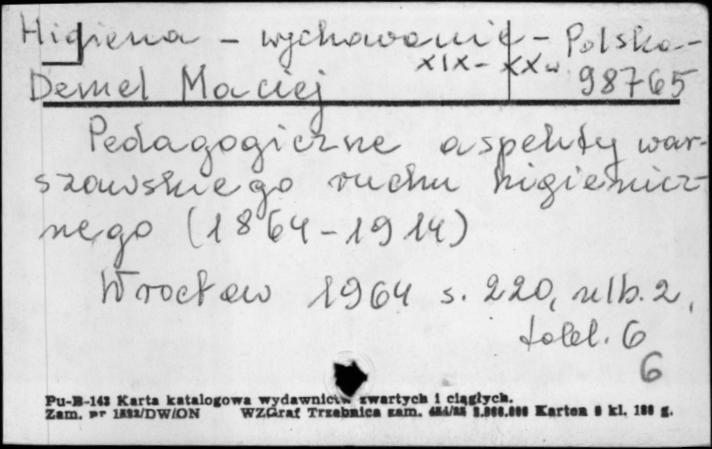 Higiena - wychowanie - Polska -
XIX - XX w
Demel Maciej 98765
Pedagogiczne aspekty war-
szawskiego ruchu higienicz-
nego (1864-1914)
Wrocław 1964 s. 220, nlb. 2,
tabl. 6
6
Pu-B-143 Karta katalogowa wydawnictw zwartych i ciągłych.
Zam. nr /DW/ON WZGraf Trzebnica zam. Karton kl. g.